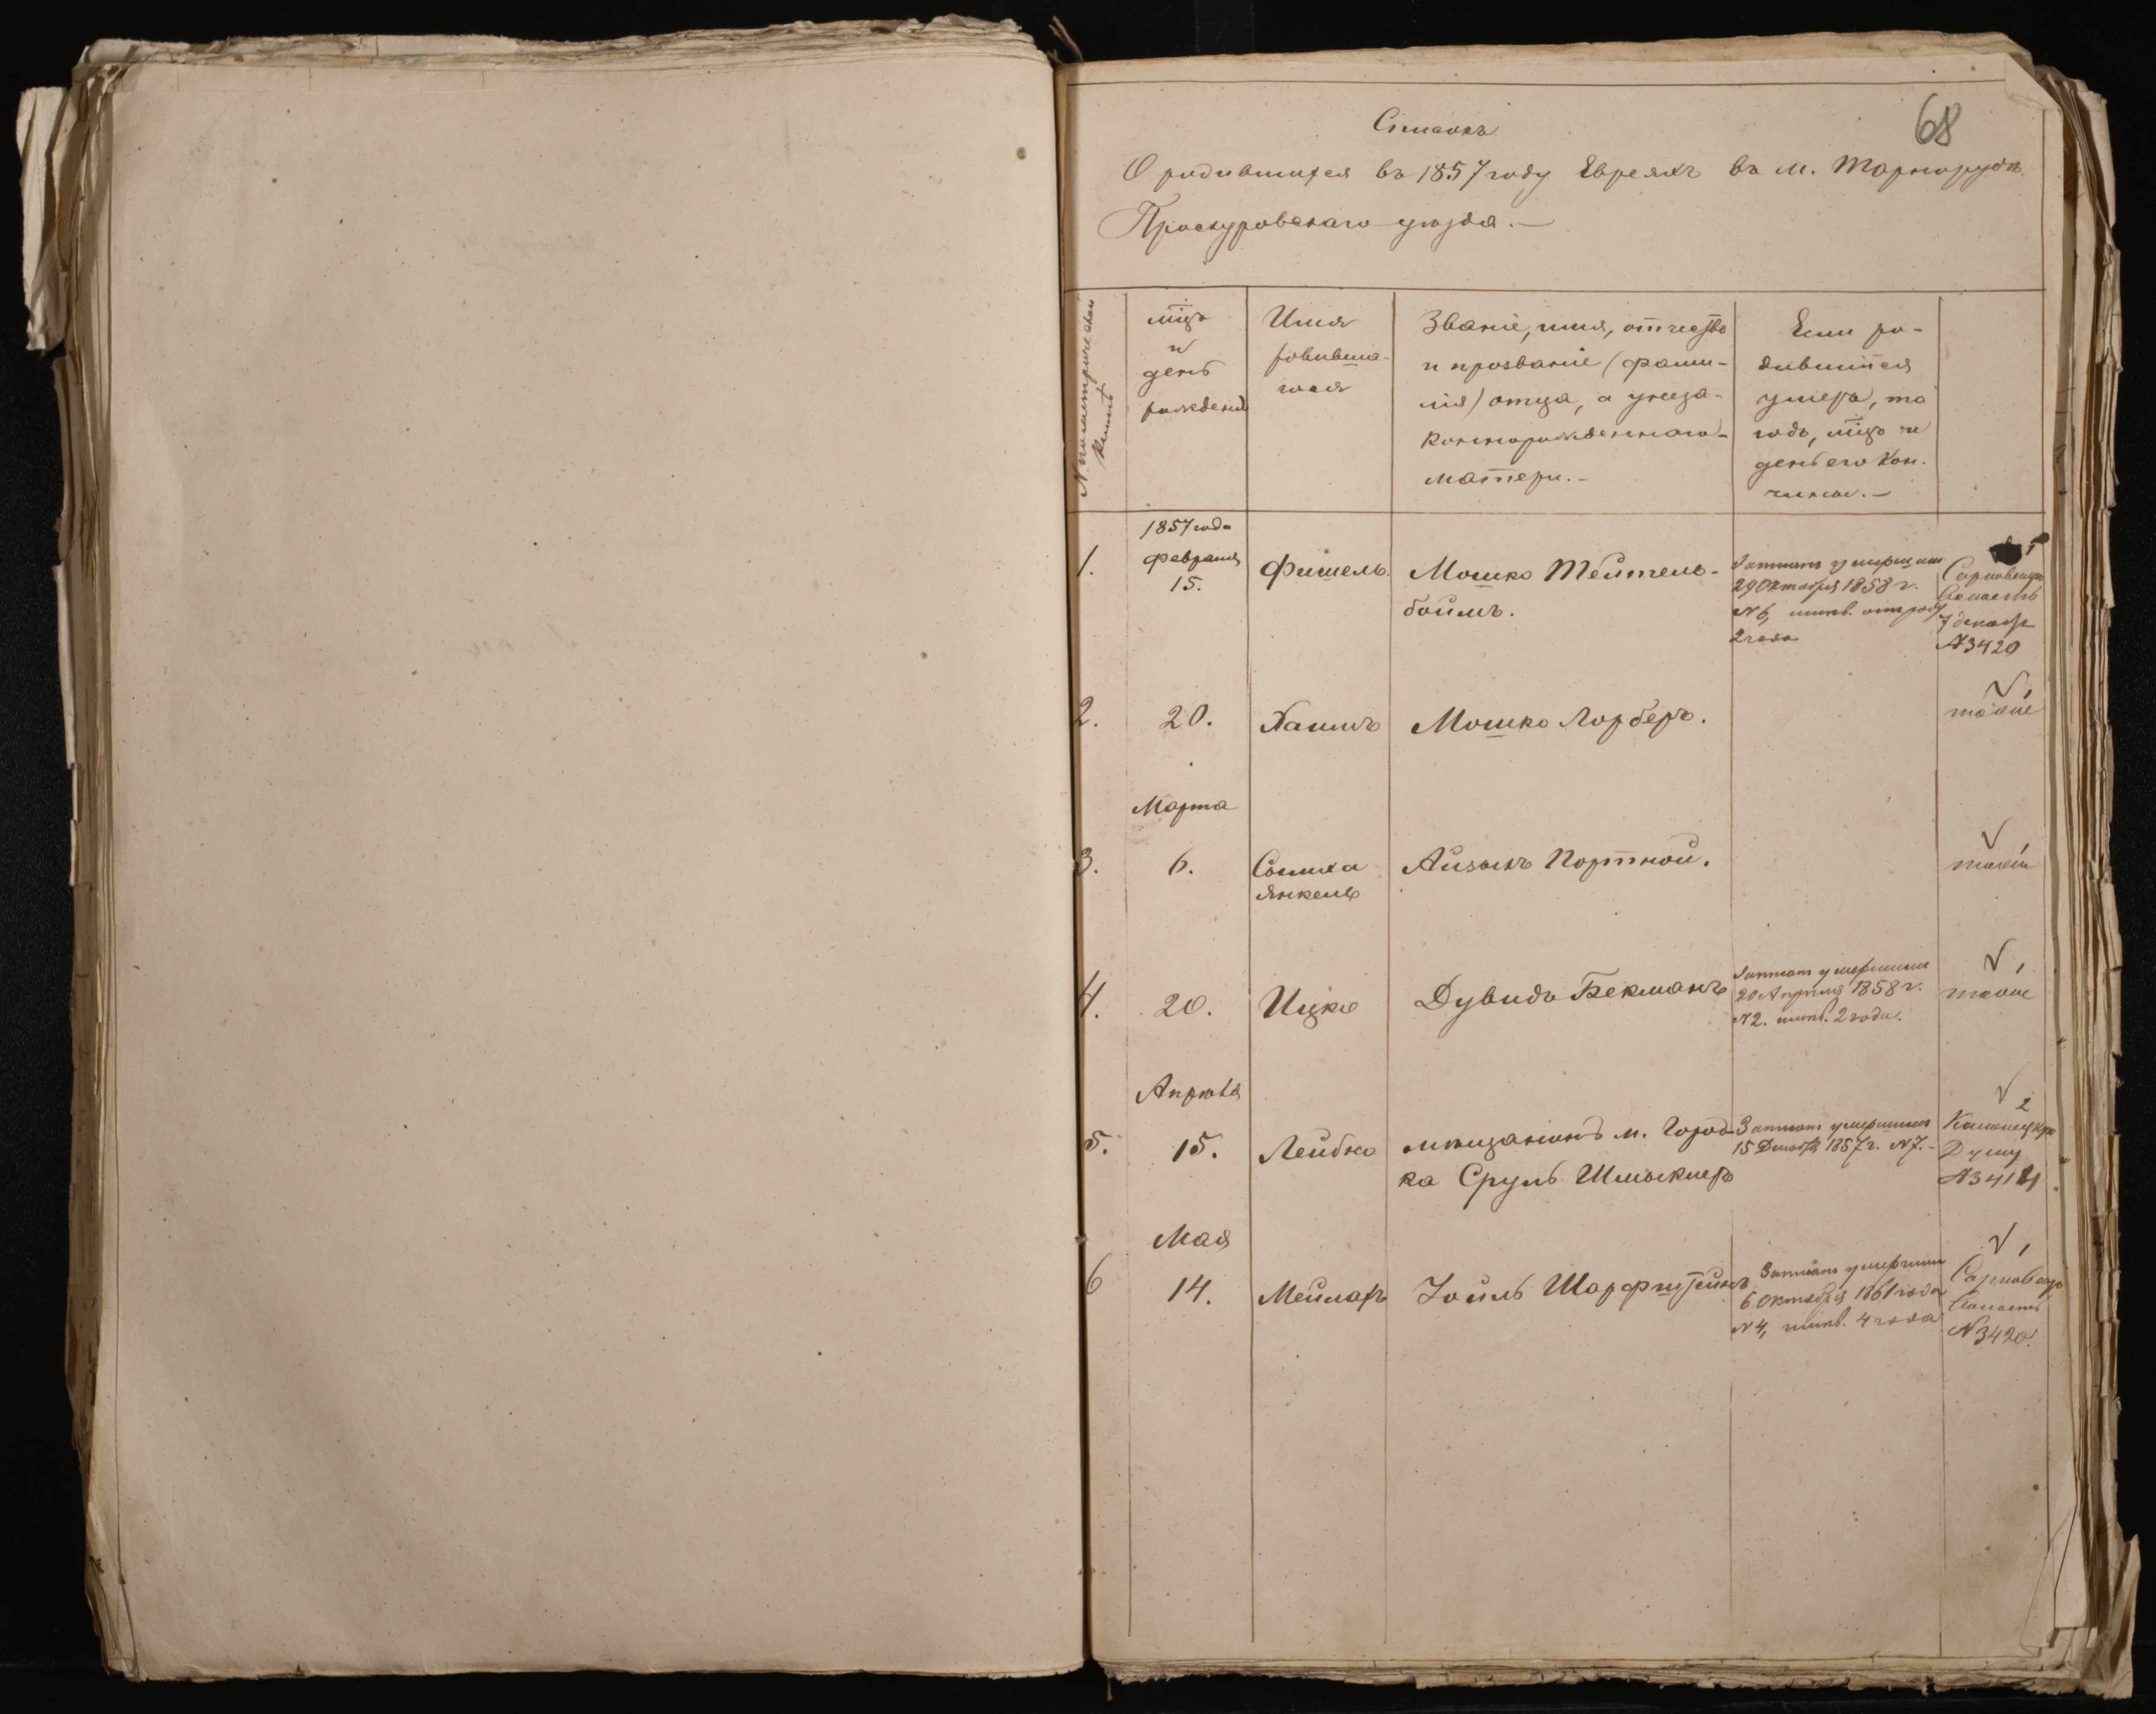 68
Списокъ
О родившихся въ 1857 году Евреяхъ въ м. Тарнорудѣ
Проскуровскаго уѣзда. —
№ по метрической
книгѣ
мцъ
и
день
рожденія
Имя
родивша-
гося
Званіе, имя, отчество
и прозваніе (фами-
лія) отца, а у неза-
коннорожденнаго-
матери. -
Если ро-
дившійся
умеръ, то
годъ, мцъ и
день его кон-
чины. —
1857 года
1.
Февраля
15.
Фишель.
Мошко Тейтель-
боймъ.
Записанъ умершимъ
29 Октября 1858 г.
№ 6, отъ роду
2 года
7 декабр
№ 3420
2.
20.
Хаимъ
Мошко Лорберъ.
также
Марта
3.
6.
Симха
Янкель
Айзыкъ Портной.
также
4.
20.
Ицко
Дувидъ Бекманъ
Записанъ умершимъ
20 Апреля 1858 г.
№ 2. 2 года.
также
Апрѣля
5.
15.
Лейбко
мѣщанинъ м. Город-
ка Сруль
Записанъ умершимъ
15 Декабря 1857 г. № 7. -
2
Каменецкую
Думу
№ 3414
Мая
6
14.
Мейларъ
Іойль Шарфштейнъ
Записанъ умершимъ
6 Октября 1861 года
№ 4, 4 года
№ 3420.